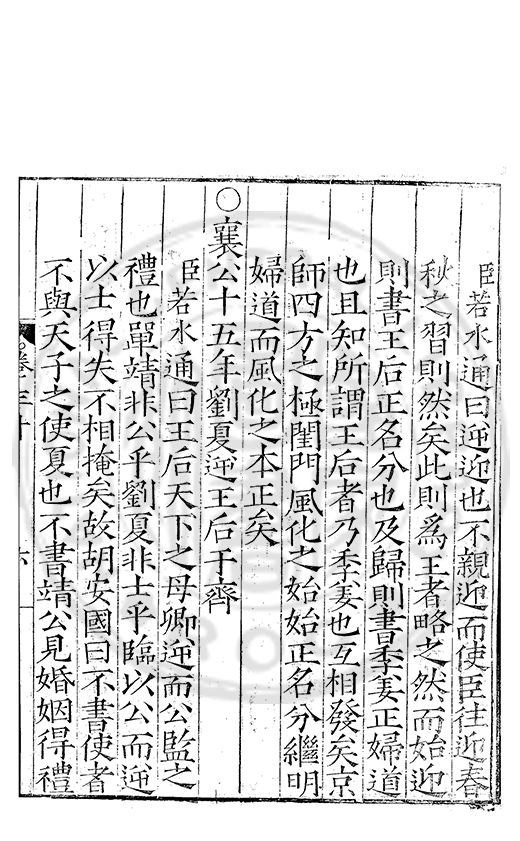 臣若水通曰逆迎也不親迎而使臣往迎春
秋之習則然矣此則爲王者略之然而始迎
則書王后正名分也及歸則書季姜正婦道
也且知所謂王后者乃季姜也互相發矣京
師四方之極閨門風化之始始正名分繼明
婦道而風化之本正矣
○襄公十五年劉夏逆王后于齊
臣若水通曰王后天下之母卿逆而公監之
禮也單靖非公乎劉夏非士乎臨以公而逆
以士得失不相掩矣故胡安國曰不書使者
不與天子之使夏也不書靖公見婚姻得禮
卷三十
六